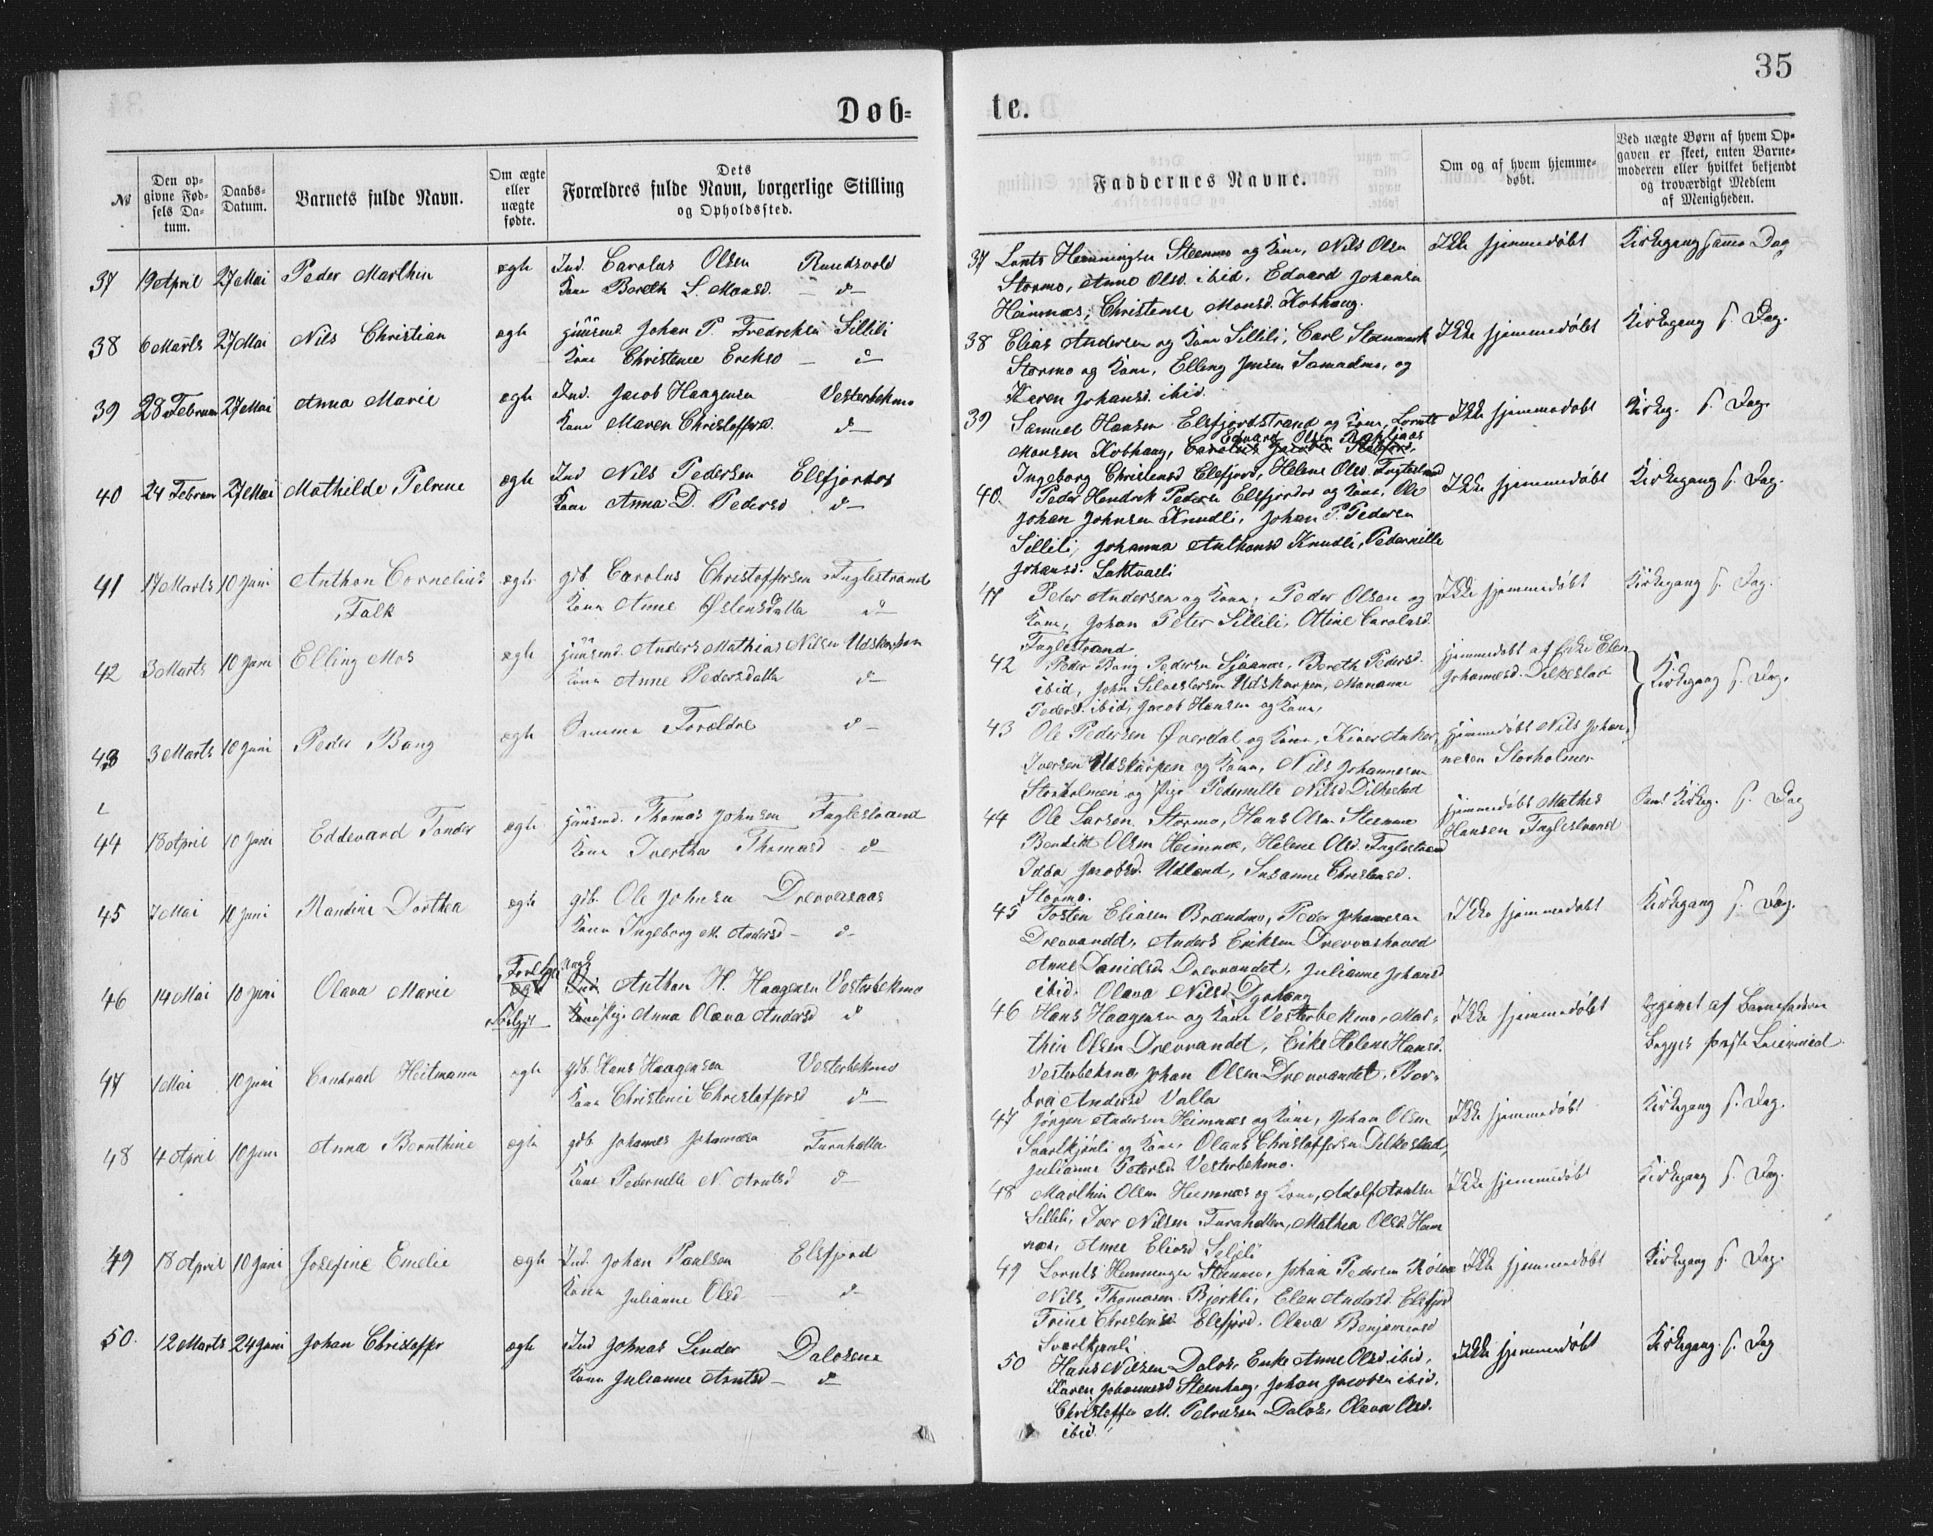 35
Døb-
te.
№
Den op-
givne Fød-
sels Da-
tum.
Daabs-
Datum.
Barnets fulde Navn.
Om ægte
eller
uægte
fødte.
Dets
Forældres fulde Navn, borgerlige Stilling
og Opholdssted.
Faddernes Navne.
Om og af hvem hjemme-
døbt.
Ved uægte Børn af hvem Op-
gaven er skeet, enten Barne-
moderen eller hvilket bekjendt
og troværdigt Medlem
af Menigheden.
37 19 April 27 Mai Peder Marthin ægte Ind. Carolus Olsen Rundsvold
Kone Bereth L. Monsd. — d—
37 Lents Henningsen Steenmo og Kone, Nils Olsen
Stormo, Anne Olsd. ibid, Edvard Johansen
Heimnæs, Christense Monsd. Kobhaug.
Ikke hjemmedøbt
Kirkegang samme Dag
38 6 Marts 27 Mai Nils Christian ægte Huusmd Johan P. Fredriksen Sillili
Kone Christence Eriksd — d—
38 Elias Andersen og Kone Sillili, Carl Steenmark
Stormo og Kone, Elling Jensen Sæmadmo, og
Karen Johansd. ibid.
Ikke hjemmedøbt
Kirkegang s. Dag.
39 28 Februar 27 Mai Anna Marie ægte Ind. Jacob Haagensen Vesterbekmo
Kone Maren Christoffersd. d—
39 Samuel Hansen Elsfjordstrand og Kone, Lornts
Monsen Kobhaug, Edvard Olsen
Ingeborg Christensd Elsfjord, Helene Olsd. Fuglestrand
Ikke hjemmedøbt
Kirkeg. s. Dag.
40 24 Februar 27 Mai Mathilde Petrine ægte Ind Nils Pedersen Elsfjordos
Kone Anna D. Pedersd d—
40. Peder Hendrik Pedersen Elsfjordos og Kone, Ole
Johan Johnsen Knudli, Johan P. Pedersen
Sillili, Johanna Anthonsd Knudli, Pedernille
Johansd. Laktvasli
Ikke hjemmedøbt
Kirkegang s. Dag.
41 17 Marts 10 Juni Anthon Cornelius ægte gdb. Carolus Christoffersen Fuglestrand
Falk Kone Anne Østensdatter d—
41 Peter Andersen og Kone, Peder Olsen og
Kone, Johan Peter Sillili, Ottine Carolusd.
Fuglestrand
Ikke hjemmedøbt
Kirkegang s. Dag.
42 3 Marts 10 Juni Elling Mos ægte Huusmd. Anders Mathias Nilsen Udskarpen
Kone Anne Pedersdatter d—
42 Peder Bang Pedersen Sjaanæs, Bereth Pedersd.
ibid, John Silvestersen Udskarpen, Marianne
Pedersd. ibid, Jacob Hansen og Kone,
Hjemmedøbt af Enke Elen
Johannesd. Dilkestad
Kirkegang s. Dag.
43 3 Marts 10 Juni Peder Bang ægte Samme Forældre d—
43 Ole Pedersen Øverdal og Kone,
Iversen Udskarpen og Kone, Nils Johannesen
Storholmen og Pige Pedernille Nilsd. Dilkestad
Hjemmedøbt Nils Johan-
nesen Storholmen
44 18 April 10 Juni Eddevard Tønder ægte Huusmd. Thomas Johnsen Fuglestrand
Kone Ivertha Thomasd. d—
44 Ole Larsen Stormo, Hans Olsen Steenmo
Bendikt Olsen Heimnæs, Helene Olsd. Fuglestrand
Jacobsd. Udland, Susanne Christensd.
Stormo.
Hjemmedøbt Mathes
Hansen Fuglestrand
Saml. Kirkeg. s. Dag
45 7 Mai 10 Juni Randine Dorthea ægte gdb. Ole Johnsen Drevvasaas
Kone Ingeborg M. Andersd — d—
45 Tosten Eliasen Brændmo, Peder Johannesen
Drevvandet, Anders Eriksen Drevvashoved
Anne Danielsd Drevvandet, Julianne Johansd
ibid. Olava Nilsd Dyrhaug
Ikke hjemmedøbt
Kirkegang s. Dag.
46 14 Mai 10 Juni Olava Marie Ungk. Anthon H. Haagensen Vesterbekmo
Pige Anna Olava Andersd d—
46 Hans Haagensen og Kone Vesterbekmo, Mar-
thin Olsen Drevvandet, Enke Helene Hansd.
Vesterbekmo, Johan Olsen Drevvandet, Ber-
Andersd Valla
Ikke hjemmedøbt
af Barnefaderen
Begges første Leiermaal
47 1 Mai 10 Juni Conrad Heitmann ægte gdb. Hans Haagensen Vesterbekmo
Kone Christense Christoffersd d—
47 Jørgen Andersen Heimnæs og Kone, Johan Olsen
Svartkjønli og Kone, Olaus Christoffersen Dilkestad,
Julianne Petersd Vesterbekmo.
Ikke hjemmedøbt
Kirkegang s. Dag.
48 4 April 10 Juni Anna Bernthine ægte gdb. Johannes Johannesen Furuhatten
Kone Pedernille N. Arntsd d—
48 Marthin Olsen Heimnæs og Kone, Adolf Arntsen
Sillili, Iver Nilsen Furuhatten, Mathea Olsd. Heim
næs, Anne Eliasd Seljeli
Ikke hjemmedøbt
Kirkegang s. Dag.
49 18 April 10 Juni Josefine Emelie ægte Ind. Johan Paulsen Elsfjord
Kone Julianne Olsd — d—
49 Lornts Henningsen Steenmo, Johan Pedersen
Nils Thomasen Bjerkli, Elen Andersd Elsfjord
Trine Christensd Elsfjord, Olava Benjaminsd
Svartkjønli
Ikke hjemmedøbt
Kirkegang s. Dag.
50. 12 Marts 24 Juni Johan Christoffer ægte Ind Johnas Linder Dalosene
Kone Julianne Arntsd — d—
50 Hans Nilsen Dalos, Enke Anne Olsd ibid,
Karen Johannesd Steenhaug, Johan Jacobsen ibid,
Christoffer M. Petersen Dalos, Olava Olsd.
ibid.
Ikke hjemmedøbt
Kirkegang s. Dag